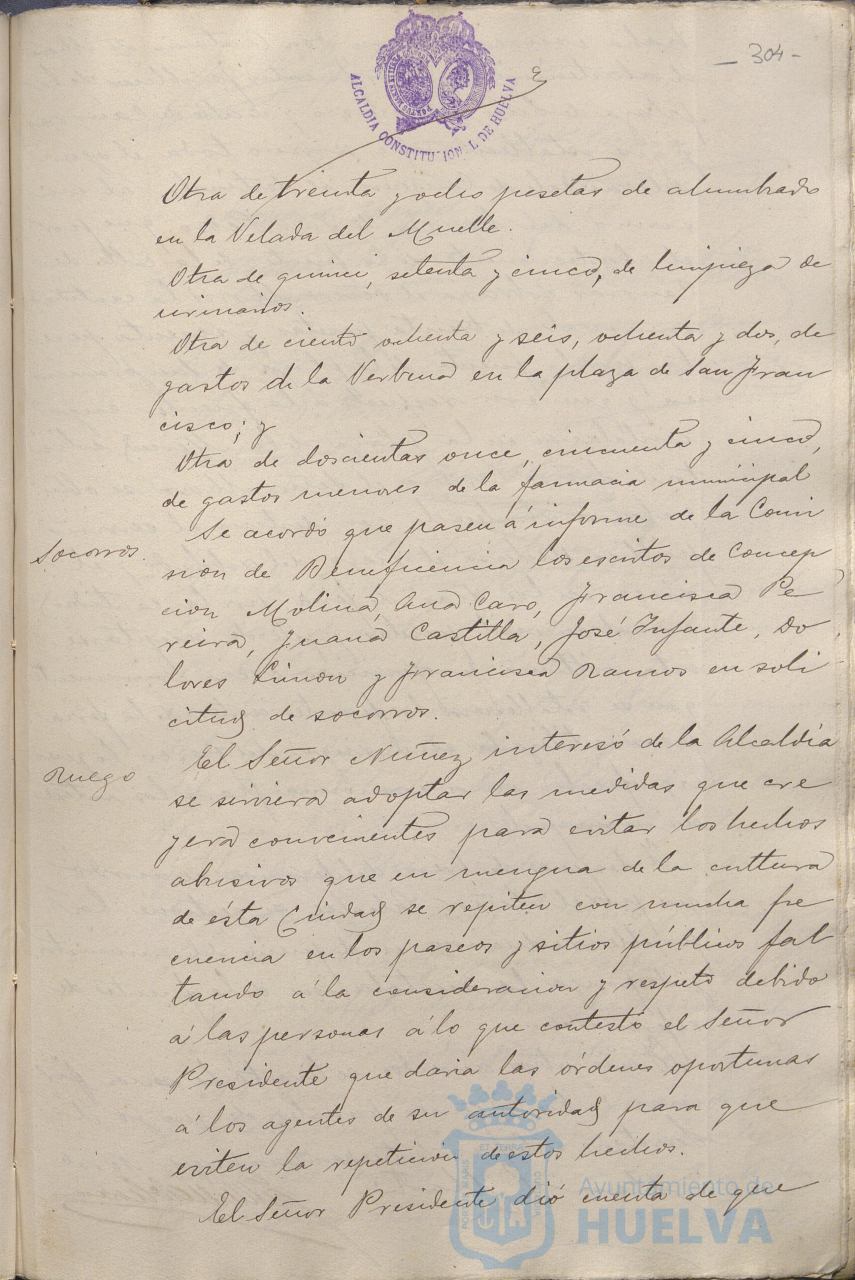 - 304 -
ALCALDIA CONSTITUCIONAL DE HUELVA
Otra de treinta y ocho pesetas de alumbrado
en la Velada del Muelle.
Otra de quince, setenta y cinco, de limpieza de
urinarios.
Otra de ciento ochenta y seis, ochenta y dos, de
gastos de la Verbena en la plaza de San Fran
cisco; y
Otra de doscientas once, cincuenta y cinco,
de gastos menores de la farmacia municipal
Socorros.
Se acordó que pasen á informe de la Comi
sión de Beneficencia los escritos de Concep
cion Molina, Ana Caro, Francisca Pe
reira, Juana Castilla, José Infante, Do
lores Limon y Francisca Ramos en soli
citud de socorros.
Ruego
El Señor Nuñez interesó de la Alcaldía
se sirviera adoptar las medidas que cre
yera convenientes para evitar los hechos
abusivos que en mengua de la cultura
de ésta Ciudad se repiten con mucha fre
cuencia en los paseos y sitios públicos fal
tando á la consideracion y respeto debido
á las personas á lo que contestó el Señor
Presidente que daria las órdenes oportunas
á los agentes de su autoridad para que
eviten la repetición de estos hechos.
El Señor Presidente dió cuenta de que
Ayuntamiento de
HUELVA